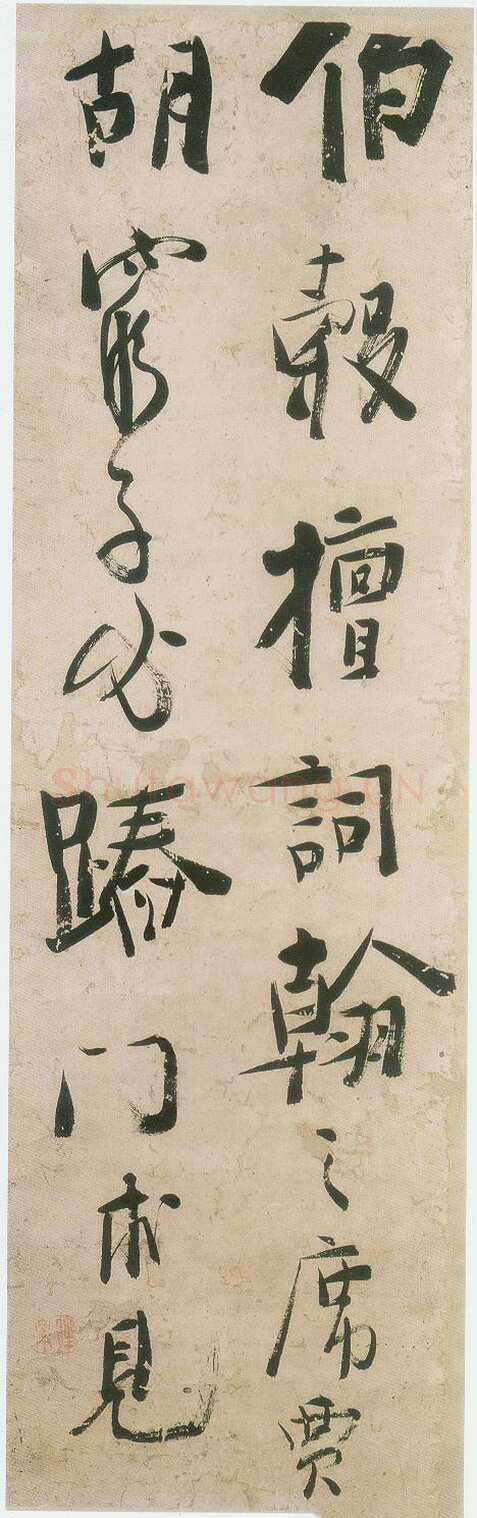 伯穀擅詞翰之席賈
胡窮子必門求見
Shufawang.CN